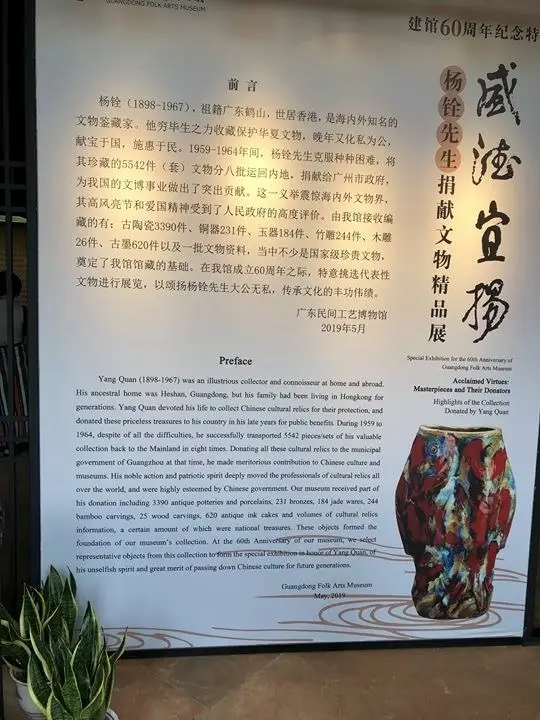 GUANGDONG FOLK ARTS MUSEUM
建馆60周年纪念特
威德宣扬
杨铨先生捐献文物精品展
前言
杨铨（1898-1967），祖籍广东鹤山，世居香港，是海内外知名的
文物鉴藏家。他穷毕生之力收藏保护华夏文物，晚年又化私为公，
献宝于国，施惠于民。1959-1964年间，杨铨先生克服种种困难，将
其珍藏的5542件（套）文物分八批运回内地，捐献给广州市政府，
为我国的文博事业做出了突出贡献。这一义举震惊海内外文物界，
其高风亮节和爱国精神受到了人民政府的高度评价。由我馆接收编
藏的有：古陶瓷3390件、铜器231件、玉器184件、竹雕244件、木雕
26件、古墨620件以及一批文物资料，当中不少是国家级珍贵文物，
奠定了我馆馆藏的基础。在我馆成立60周年之际，特意挑选代表性
文物进行展览，以颂扬杨铨先生大公无私，传承文化的丰功伟绩。
广东民间工艺博物馆
2019年5月
Special Exhibition for the 60th Anniversary of
Guangdong Folk Arts Museum
Acclaimed Virtues:
Masterpieces and Their Donators
Highlights of the Collection
Donated by Yang Quan
Preface
Yang Quan (1898-1967) was an illustrious collector and connoisseur at home and abroad.
His ancestral home was Heshan, Guangdong, but his family had been living in Hongkong for
generations. Yang Quan devoted his life to collect Chinese cultural relics for their protection, and
donated these priceless treasures to his country in his late years for public benefits. During 1959 to
1964, despite of all the difficulties, he successfully transported 5542 pieces/sets of his valuable
collection back to the Mainland in eight times. Donating all these cultural relics to the municipal
government of Guangzhou at that time, he made meritorious contribution to Chinese culture and
museums. His noble action and patriotic spirit deeply moved the professionals of cultural relics all
over the world, and were highly esteemed by Chinese government. Our museum received part of
his donation including 3390 antique potteries and porcelains, 231 bronzes, 184 jade wares, 244
bamboo carvings, 25 wood carvings, 620 antique ink cakes and volumes of cultural relics
information, a certain amount of which were national treasures. These objects formed the
foundation of our museum's collection. At the 60th Anniversary of our museum, we select
representative objects from this collection to form the special exhibition in honor of Yang Quan, of
his unselfish spirit and great merit of passing down Chinese culture for future generations.
Guangdong Folk Arts Museum
May, 2019